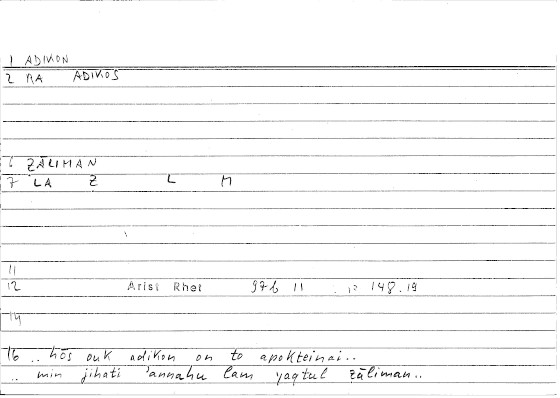 1 ADIKON
2 RA ADIKOS
6 ẒĀLIMAN
7 LA Z L M
11
12 Arist Rhet 97b 11 148.19
14
16 .. hōs ouk adikon on to apokteinai..
.. min jihati 'annahu lam yaqtul ẓāliman..